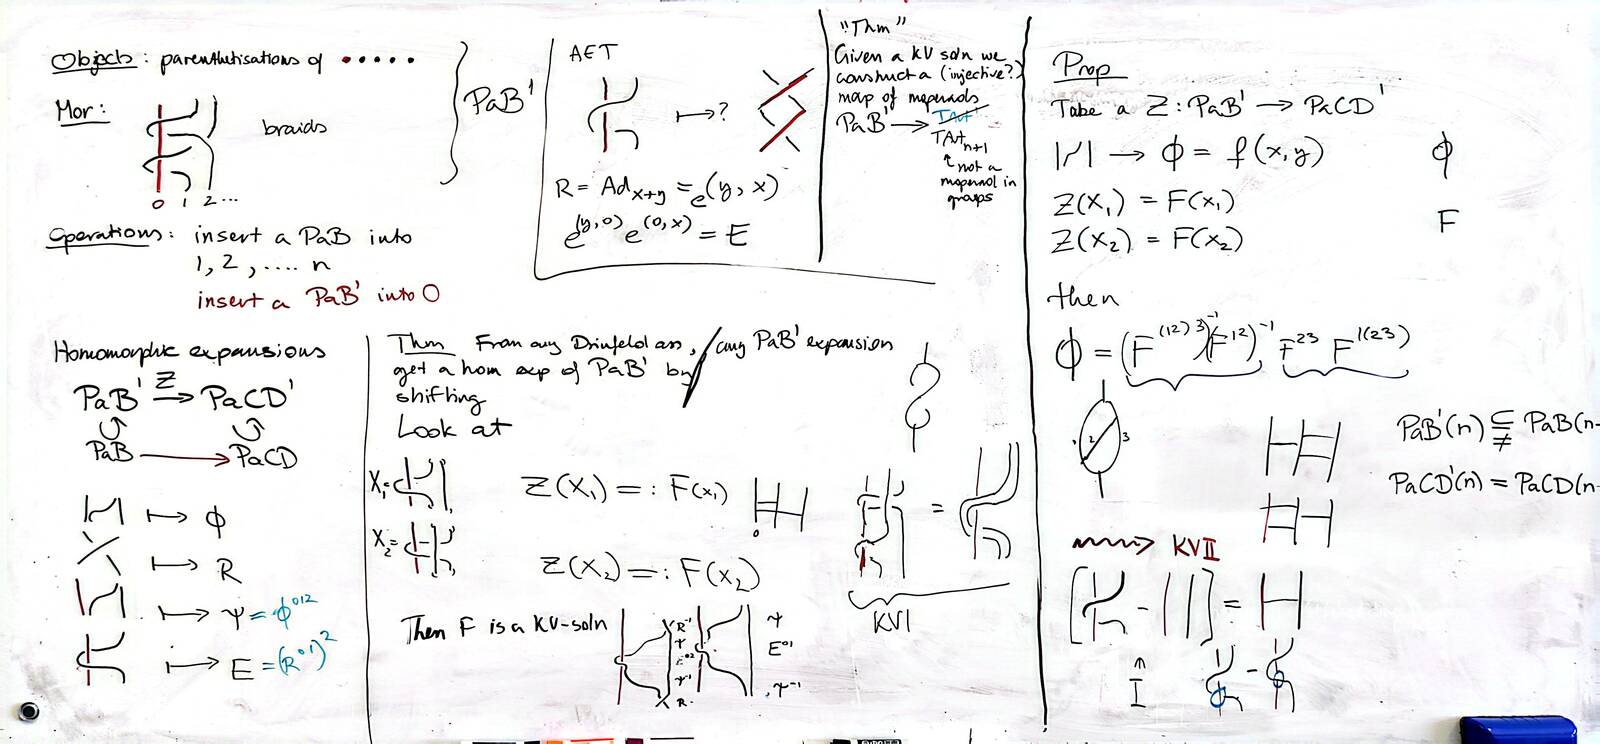 Objects: parenthetisations of • • • • •
Mor:
braids
0 1 2 ...
PaB'
Operations: insert a PaB into
1, 2, .... n
insert a PaB' into 0
AET
↦ ?
R = Ad_{x+y} = e^{(y, x)}
e^{(y,0)} e^{(0,x)} = E
"Thm"
Given a KV soln we
construct a (injective?)
map of moperads
PaB' → TAut
TAut_{n+1}
↑ not a
moperad in
groups
Homomorphic expansions
PaB' →^Z PaCD'
PaB → PaCD
↦ Φ
↦ R
↦ Ψ = Φ^{012}
↦ E = (R^{01})^2
Thm From any Drinfeld ass, / any PaB' expansion
get a hom exp of PaB' by
shifting
Look at
X_1 =
Z(X_1) =: F(x_1)
0
X_2 =
Z(X_2) =: F(x_2)
=
KVI
Then F is a KV-soln
R^{-1}
Ψ
E^{02}
Ψ^{-1}
R
Ψ
E^{01}
Ψ^{-1}
Prop
Take a Z : PaB' → PaCD'
→ Φ = f(x,y)
Φ
Z(X_1) = F(x_1)
Z(X_2) = F(x_2)
F
then
Φ = (F^{(12)3})^{-1} (F^{12})^{-1} F^{23} F^{1(23)}
1 2 3
PaB'(n) ⊊ PaB(n-
PaCD'(n) = PaCD(n-
⇝ KVII
[ - ] =
↑
I
-